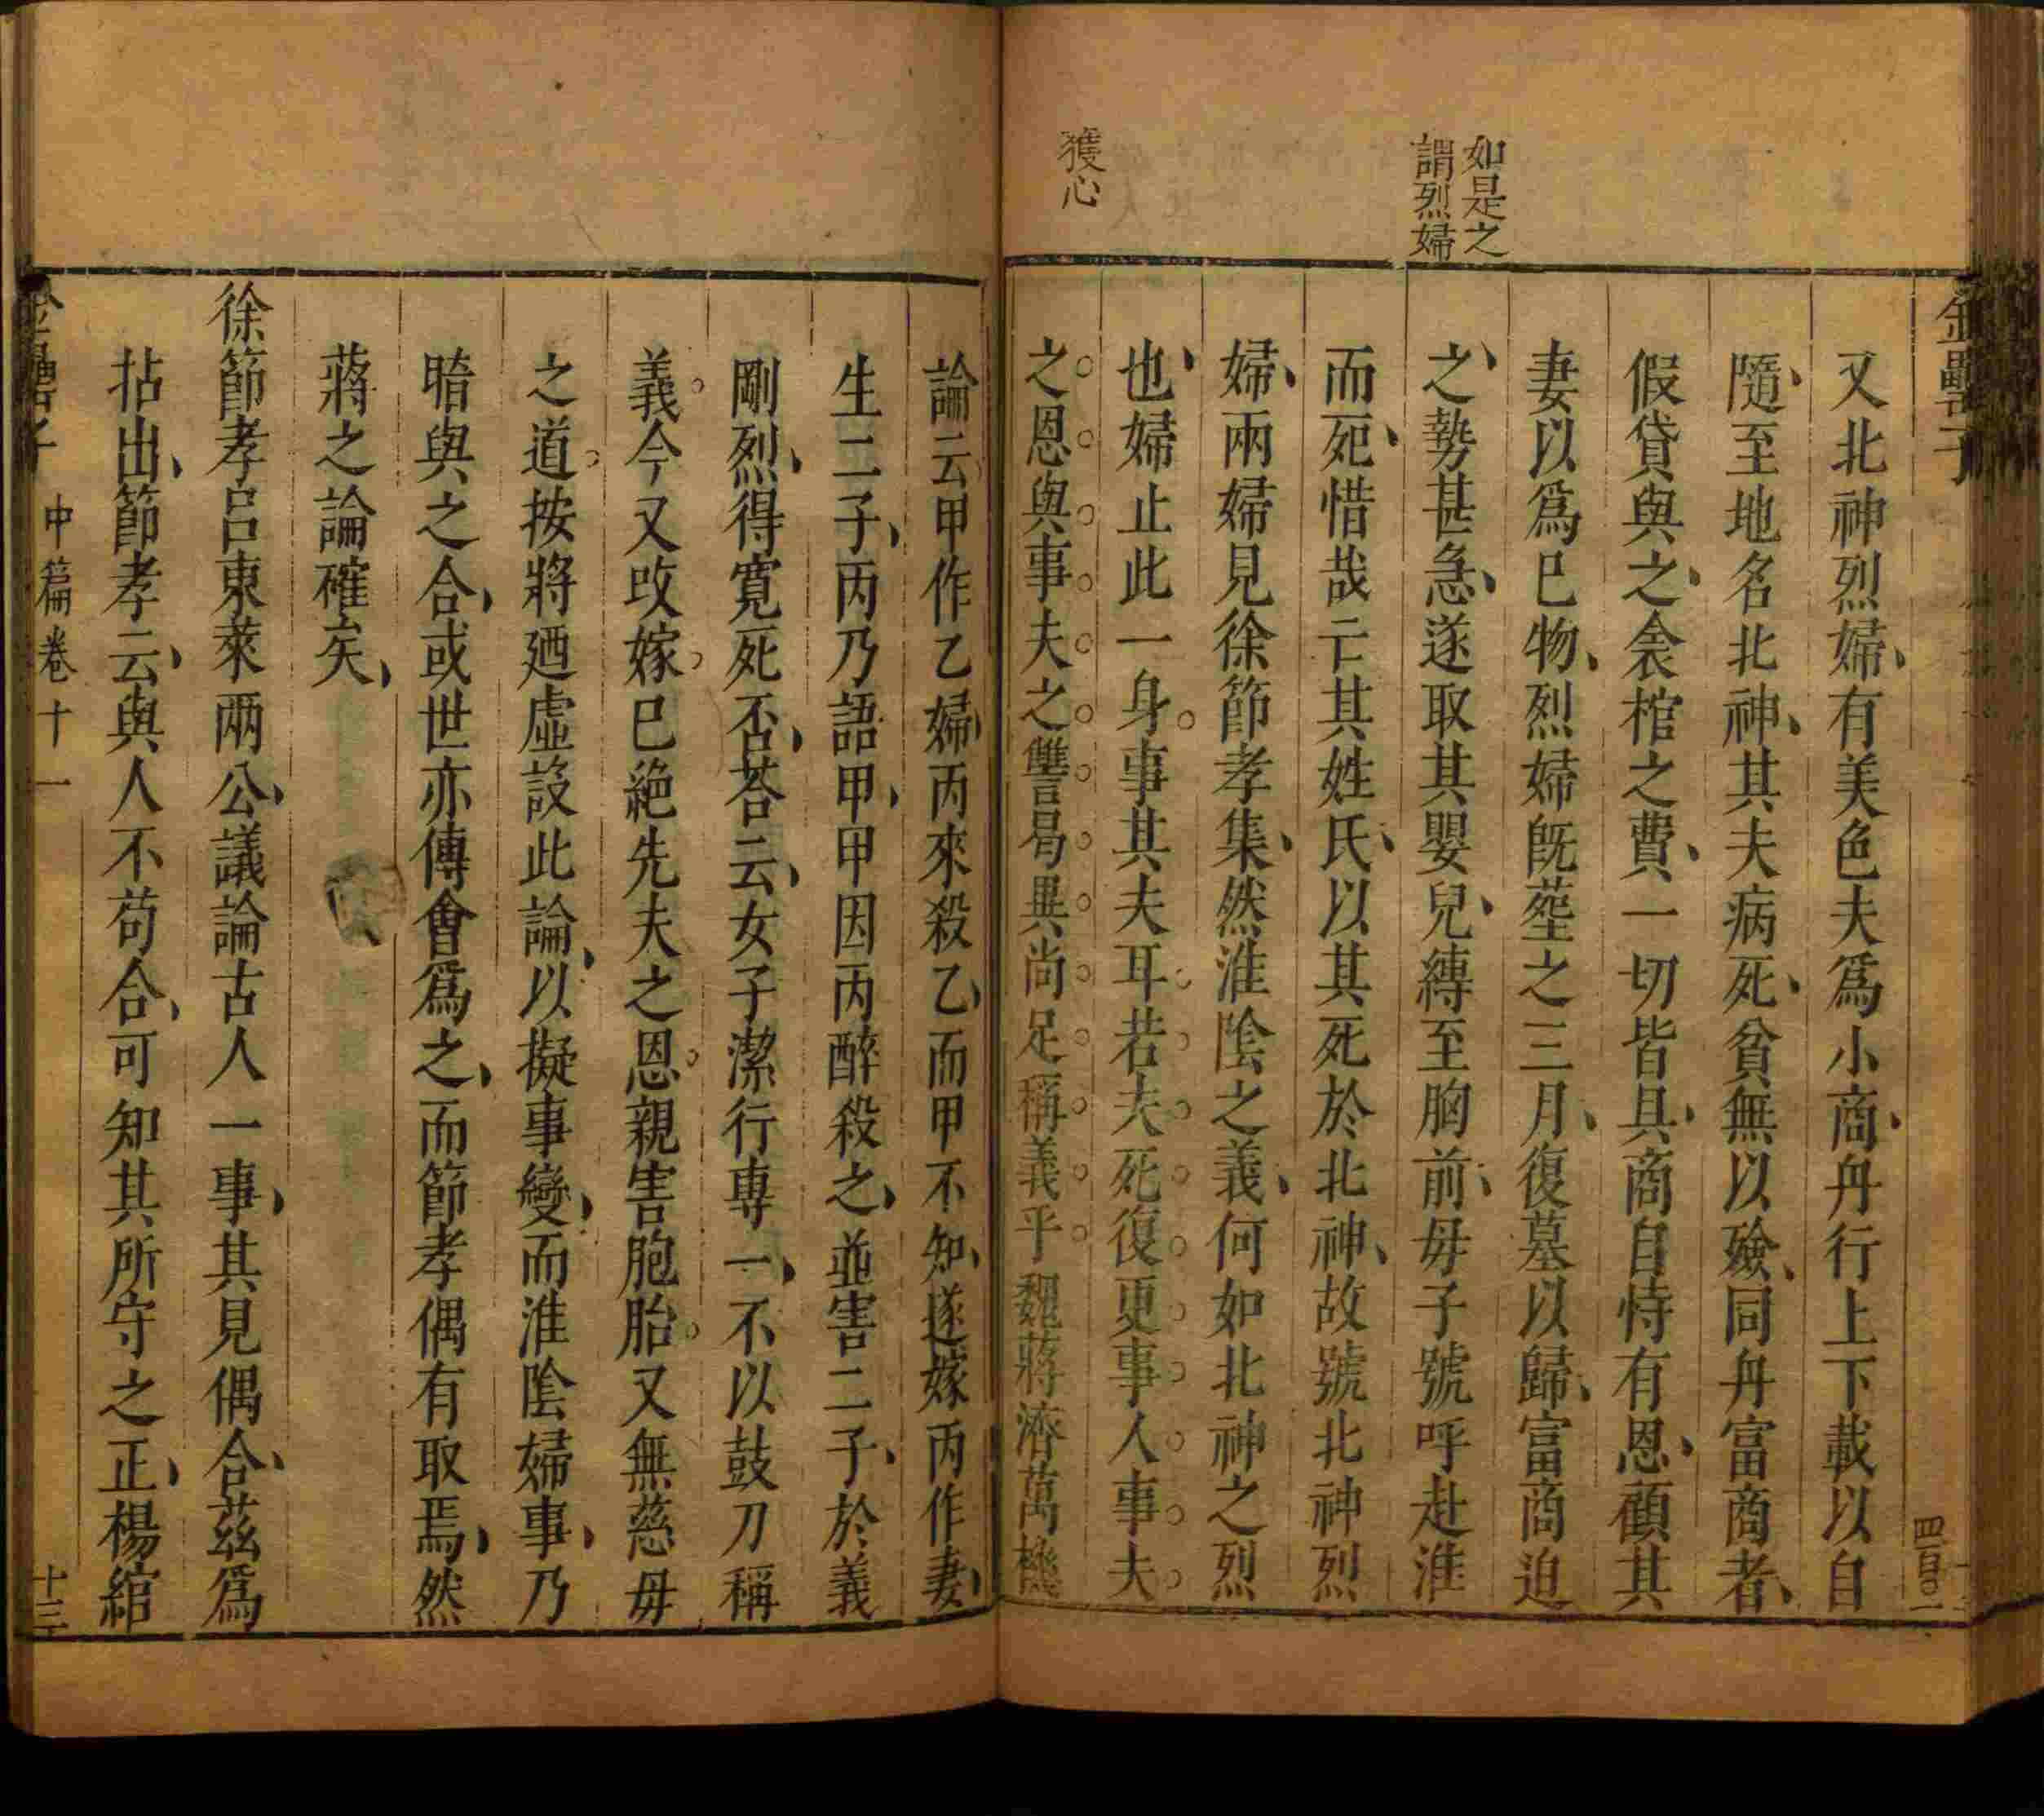 金罍子
四百〇一
如是之
謂烈婦
獲心
又北神烈婦有美色夫爲小商舟行上下載以自
隨至地名北神其夫病死貧無以殮同舟富商者
假貸與之衾棺之費一切皆具商自恃有恩顧其
妻以爲已物烈婦旣塟之三月復墓以歸富商迫
之勢甚急遂取其嬰兒縛至胸前毋子號呼赴淮
而死惜哉亡其姓氏以其死於北神故號北神烈
婦兩婦見徐節孝集然淮陰之義何如北神之烈
也婦止此一身事其夫耳若夫死復更事人事夫
之恩與事夫之讐曷異尚足稱義乎魏蔣濟萬機
論云甲作乙婦丙來殺乙而甲不知遂嫁丙作妻
生二子丙乃語甲甲因丙醉殺之並害二子於義
剛烈得寛死否荅云女子潔行專一不以鼓刀稱
義今又攺嫁巳絶先夫之恩親害胞胎又無慈毋
之道按將廼虛設此論以擬事變而淮陰婦事乃
暗與之合或世亦傳會爲之而節孝偶有取焉然
蔣之論確矣
徐節孝呂東萊兩公議論古人一事其見偶合茲爲
拈出節孝云與人不苟合可知其所守之正楊綰
金罍子
中篇卷十一
十三